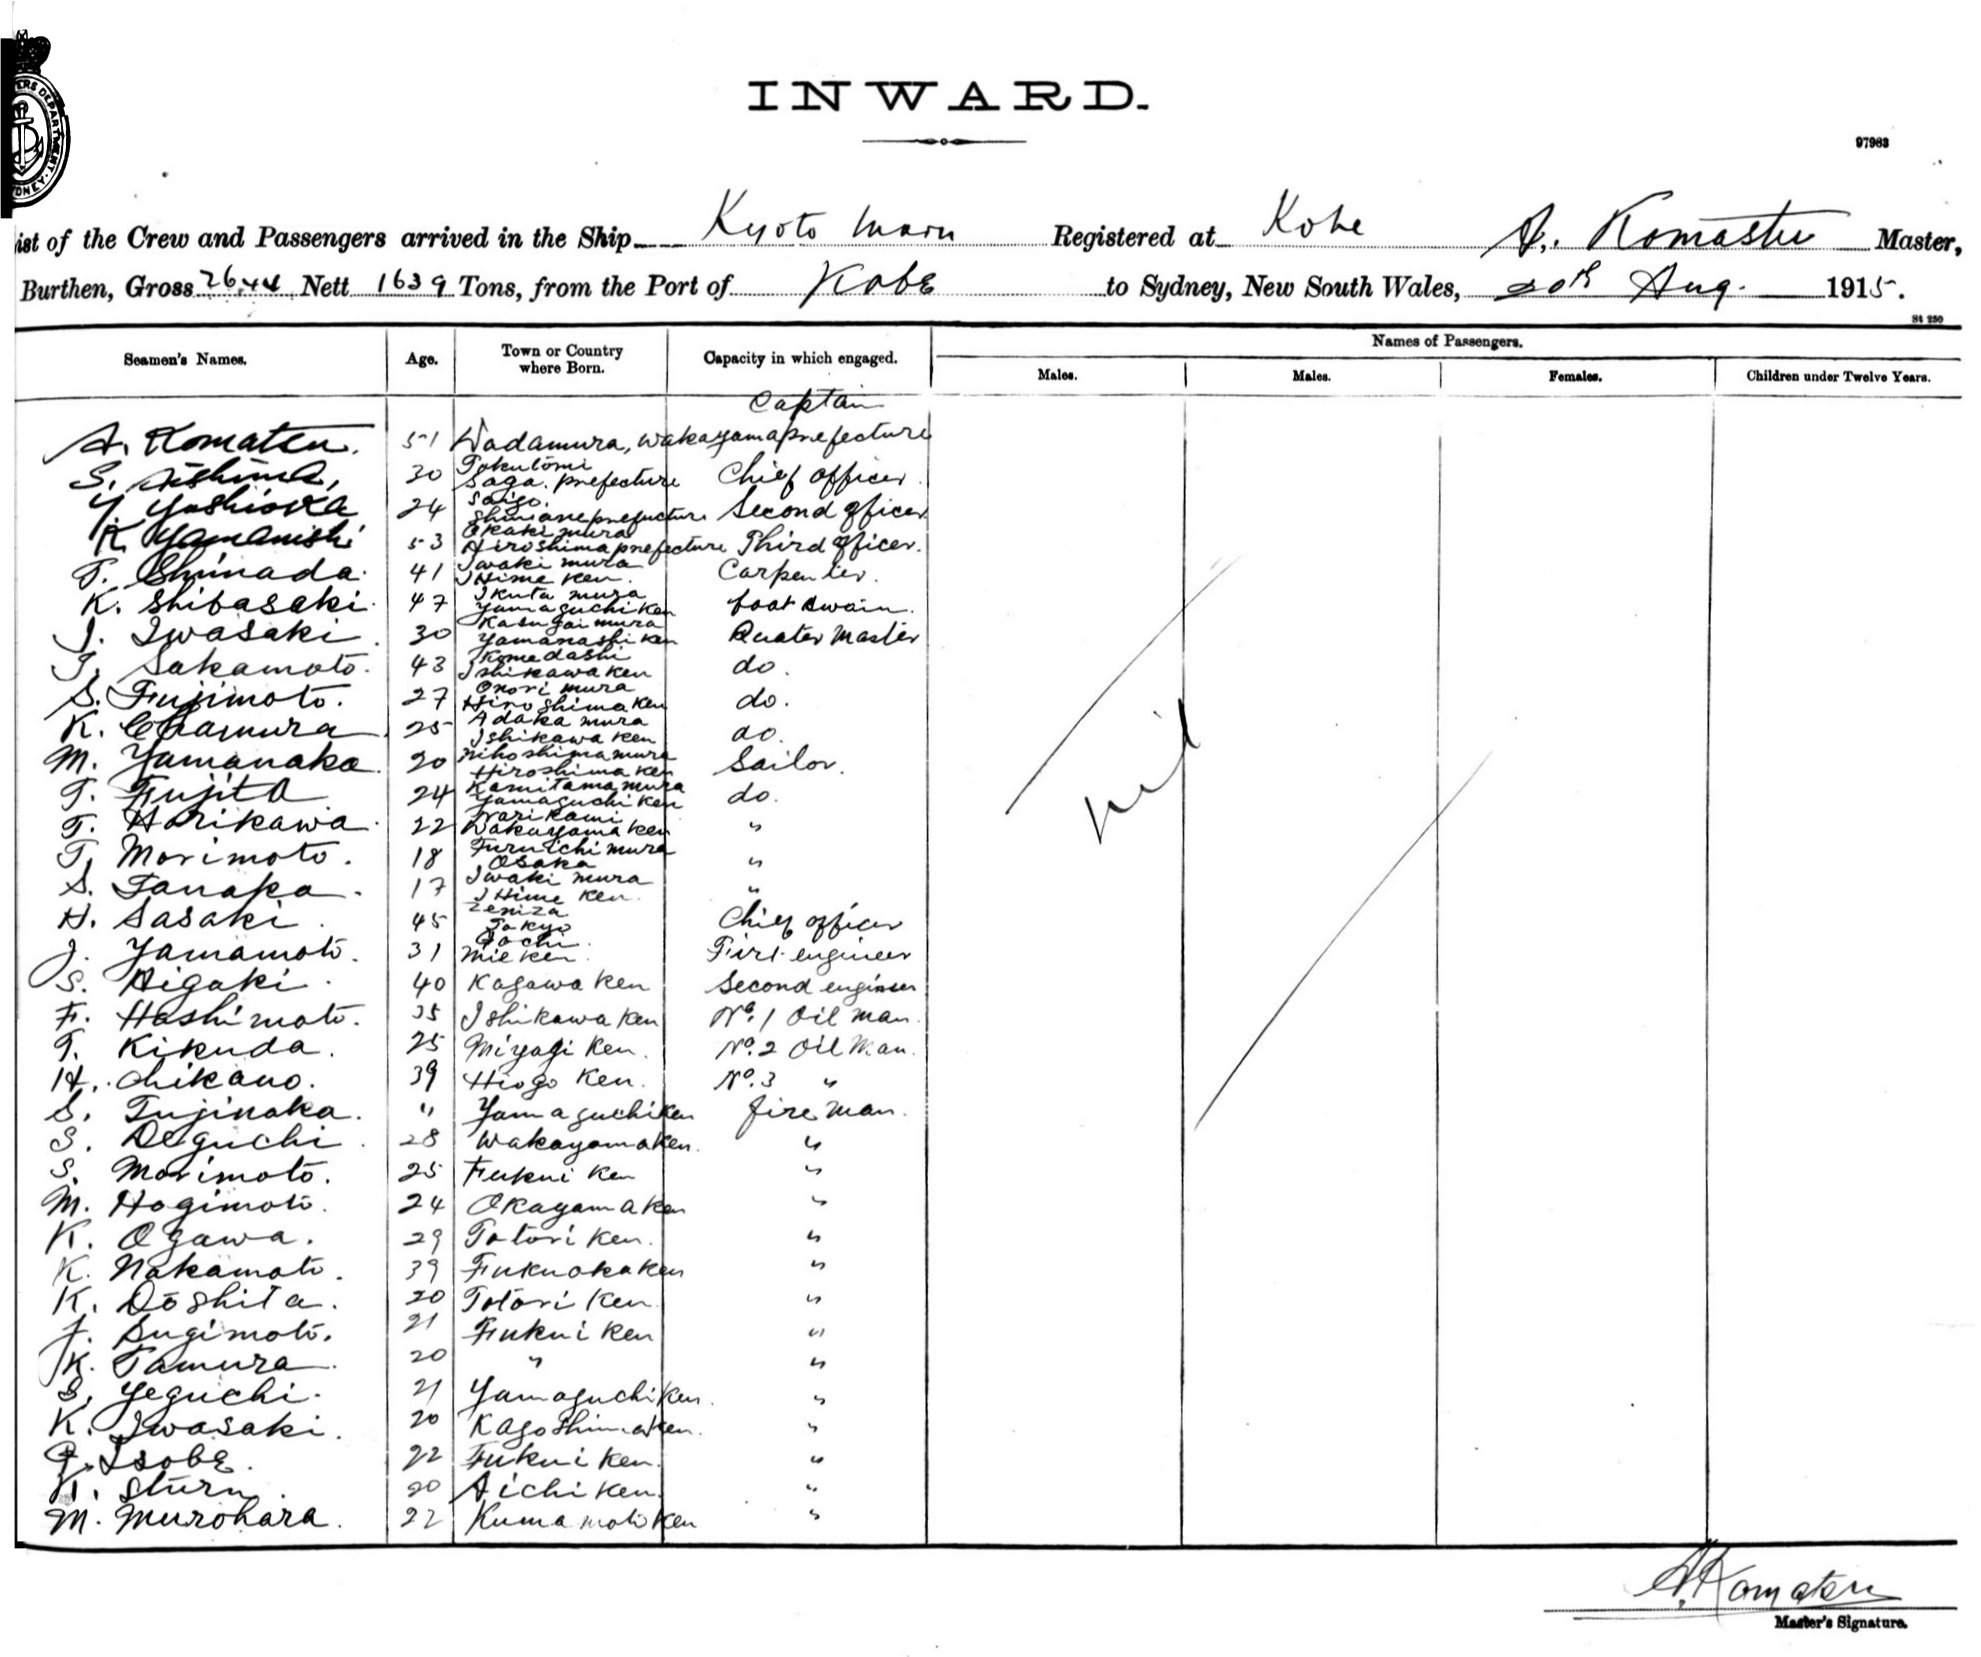 INWARD.
97983
ist of the Crew and Passengers arrived in the Ship Kyoto Maru Registered at Kobe A. Komastu Master,
Burthen, Gross 2644 Nett 1639 Tons, from the Port of Kobe to Sydney, New South Wales, 20th Aug. 1915.
St 250
Seamen's Names. Age. Town or Country where Born. Capacity in which engaged. Names of Passengers.
Males. Males. Females. Children under Twelve Years.
Captain
A. Komatsu. 51 Wadamura, Wakayama prefecture
S. Aishima, 30 Tokutomi Saga. prefecture Chief officer.
Y. Yoshioka 24 Saigo. Shimane prefucture Second officer
K. Yamanishi 53 Okaki mura Hiroshima prefecture Third officer.
T. Shinada. 41 Iwaki mura IHime Ken. Carpenter.
K. Shibasaki. 47 Ikuta mura Yamaguchi Ken boatswain.
J. Iwasaki. 30 Kasugai mura Yamanashi Ken Quater Master
T. Sakamoto. 43 Komedashi Ishikawa Ken do.
S. Fujimoto. 27 Onori mura Hiroshima Ken do.
K. 25 Adaka mura Ishikawa Ken do.
M. Yamanaka. 20 Nihoshima mura Hiroshima Ken Sailor.
T. Fujita 24 Kamitama mura Yamaguchi Ken do.
T. Horikawa. 22 Wakayama Ken "
T. Morimoto. 18 Furuichi mura Osaka "
S. Tanaka. 17 Iwaki mura IHime Ken. "
H. Sasaki. 45 Zeniza Tokyo Chief officer
J. Yamamoto. 31 Tochi. Mie Ken. First engineer
S. Higaki. 40 Kagawa Ken Second engineer
F. Hashimoto. 35 Ishikawa Ken No. 1 Oil man.
T. Kikuda. 25 Miyagi Ken. No. 2 Oil Man.
H. Chikano. 39 Hiogo Ken. No. 3 "
S. Fujinaka. " Yamaguchi Ken fire man.
S. Deguchi. 28 Wakayama Ken. "
S. Morimoto. 25 Fukui Ken "
M. Hagimoto. 24 Okayama Ken "
K. Ogawa. 29 Totori Ken. "
K. Nakamoto. 39 Fukuoka Ken "
K. Doshita. 20 Totori Ken. "
J. Sugimoto. 21 Fukui Ken "
K. Tamura. 20 " "
S. Yeguchi. 21 Yamaguchi Ken. "
K. Iwasaki. 20 Kagoshima Ken. "
Isobe. 22 Fukui Ken. "
20 Aichi Ken. "
M. Murohara. 22 Kumamoto Ken "
nil
A. Komatsu
Master's Signature.